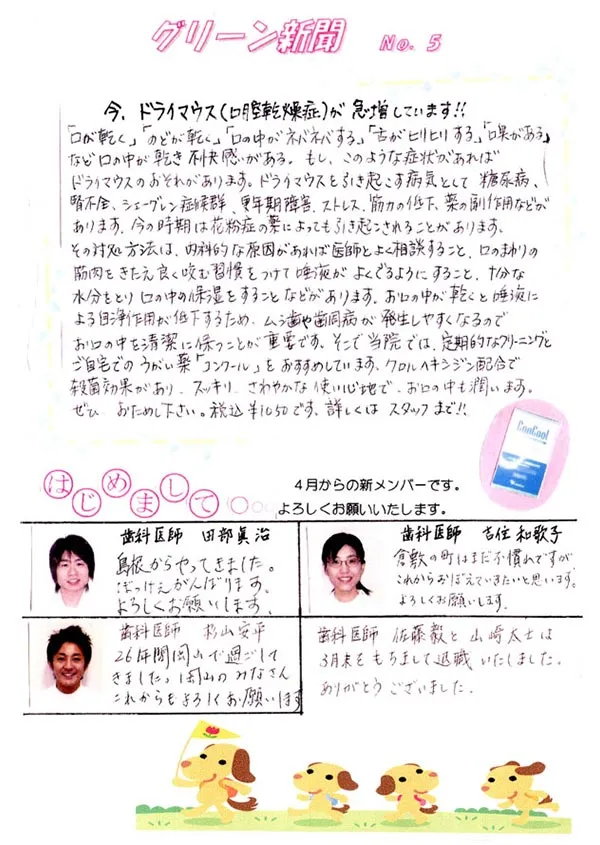 グリーン新聞 No. 5
今、ドライマウス(口腔乾燥症)が 急増しています!!
「口が乾く」「のどが乾く」「口の中がネバネバする」「舌がヒリヒリする」「口臭がある」
など口の中が 乾き 不快感がある。もし、このような症状があれば
ドライマウスのおそれがあります。ドライマウスを引き起こす病気として 糖尿病、
腎不全、シェーグレン症候群、更年期障害、ストレス、筋力の低下、薬の副作用などが
あります。今の時期は花粉症の薬によっても引き起こされることがあります。
その対処方法は、内科的な原因があれば医師とよく相談すること、口のまわりの
筋肉をきたえ良く咬む習慣をつけて唾液が よくでるようにすること、十分な
水分をとり 口の中の保湿をすることなどがあります。お口の中が乾くと唾液に
よる自浄作用が低下するため、ムシ歯や歯周病が 発生しやすくなるので
お口の中を清潔に保つことが重要です。そこで当院では、定期的なクリーニングと
ご自宅での うがい薬「コンクール」をおすすめしています。クロルヘキシジン配合で
殺菌効果があり、スッキリ、さわやかな使い心地で、お口の中も潤います。
ぜひ おためし下さい。税込¥1050です。詳しくは スタッフまで!!
ConCool
はじめまして
4月からの新メンバーです。
よろしくお願いいたします。
歯科医師 田部眞治
島根からやってきました。
ぼっけえがんばります。
よろしくお願いします。
歯科医師 吉住和歌子
倉敷の町はまだ不慣れですが
これからおぼえていきたいと思います。
よろしくお願いします。
歯科医師 杉山安平
26年間岡山で過ごして
きました。岡山のみなさん
これからもよろしくお願います
歯科医師 佐藤毅と山崎太士は
3月末をもちまして退職いたしました。
ありがとうございました。